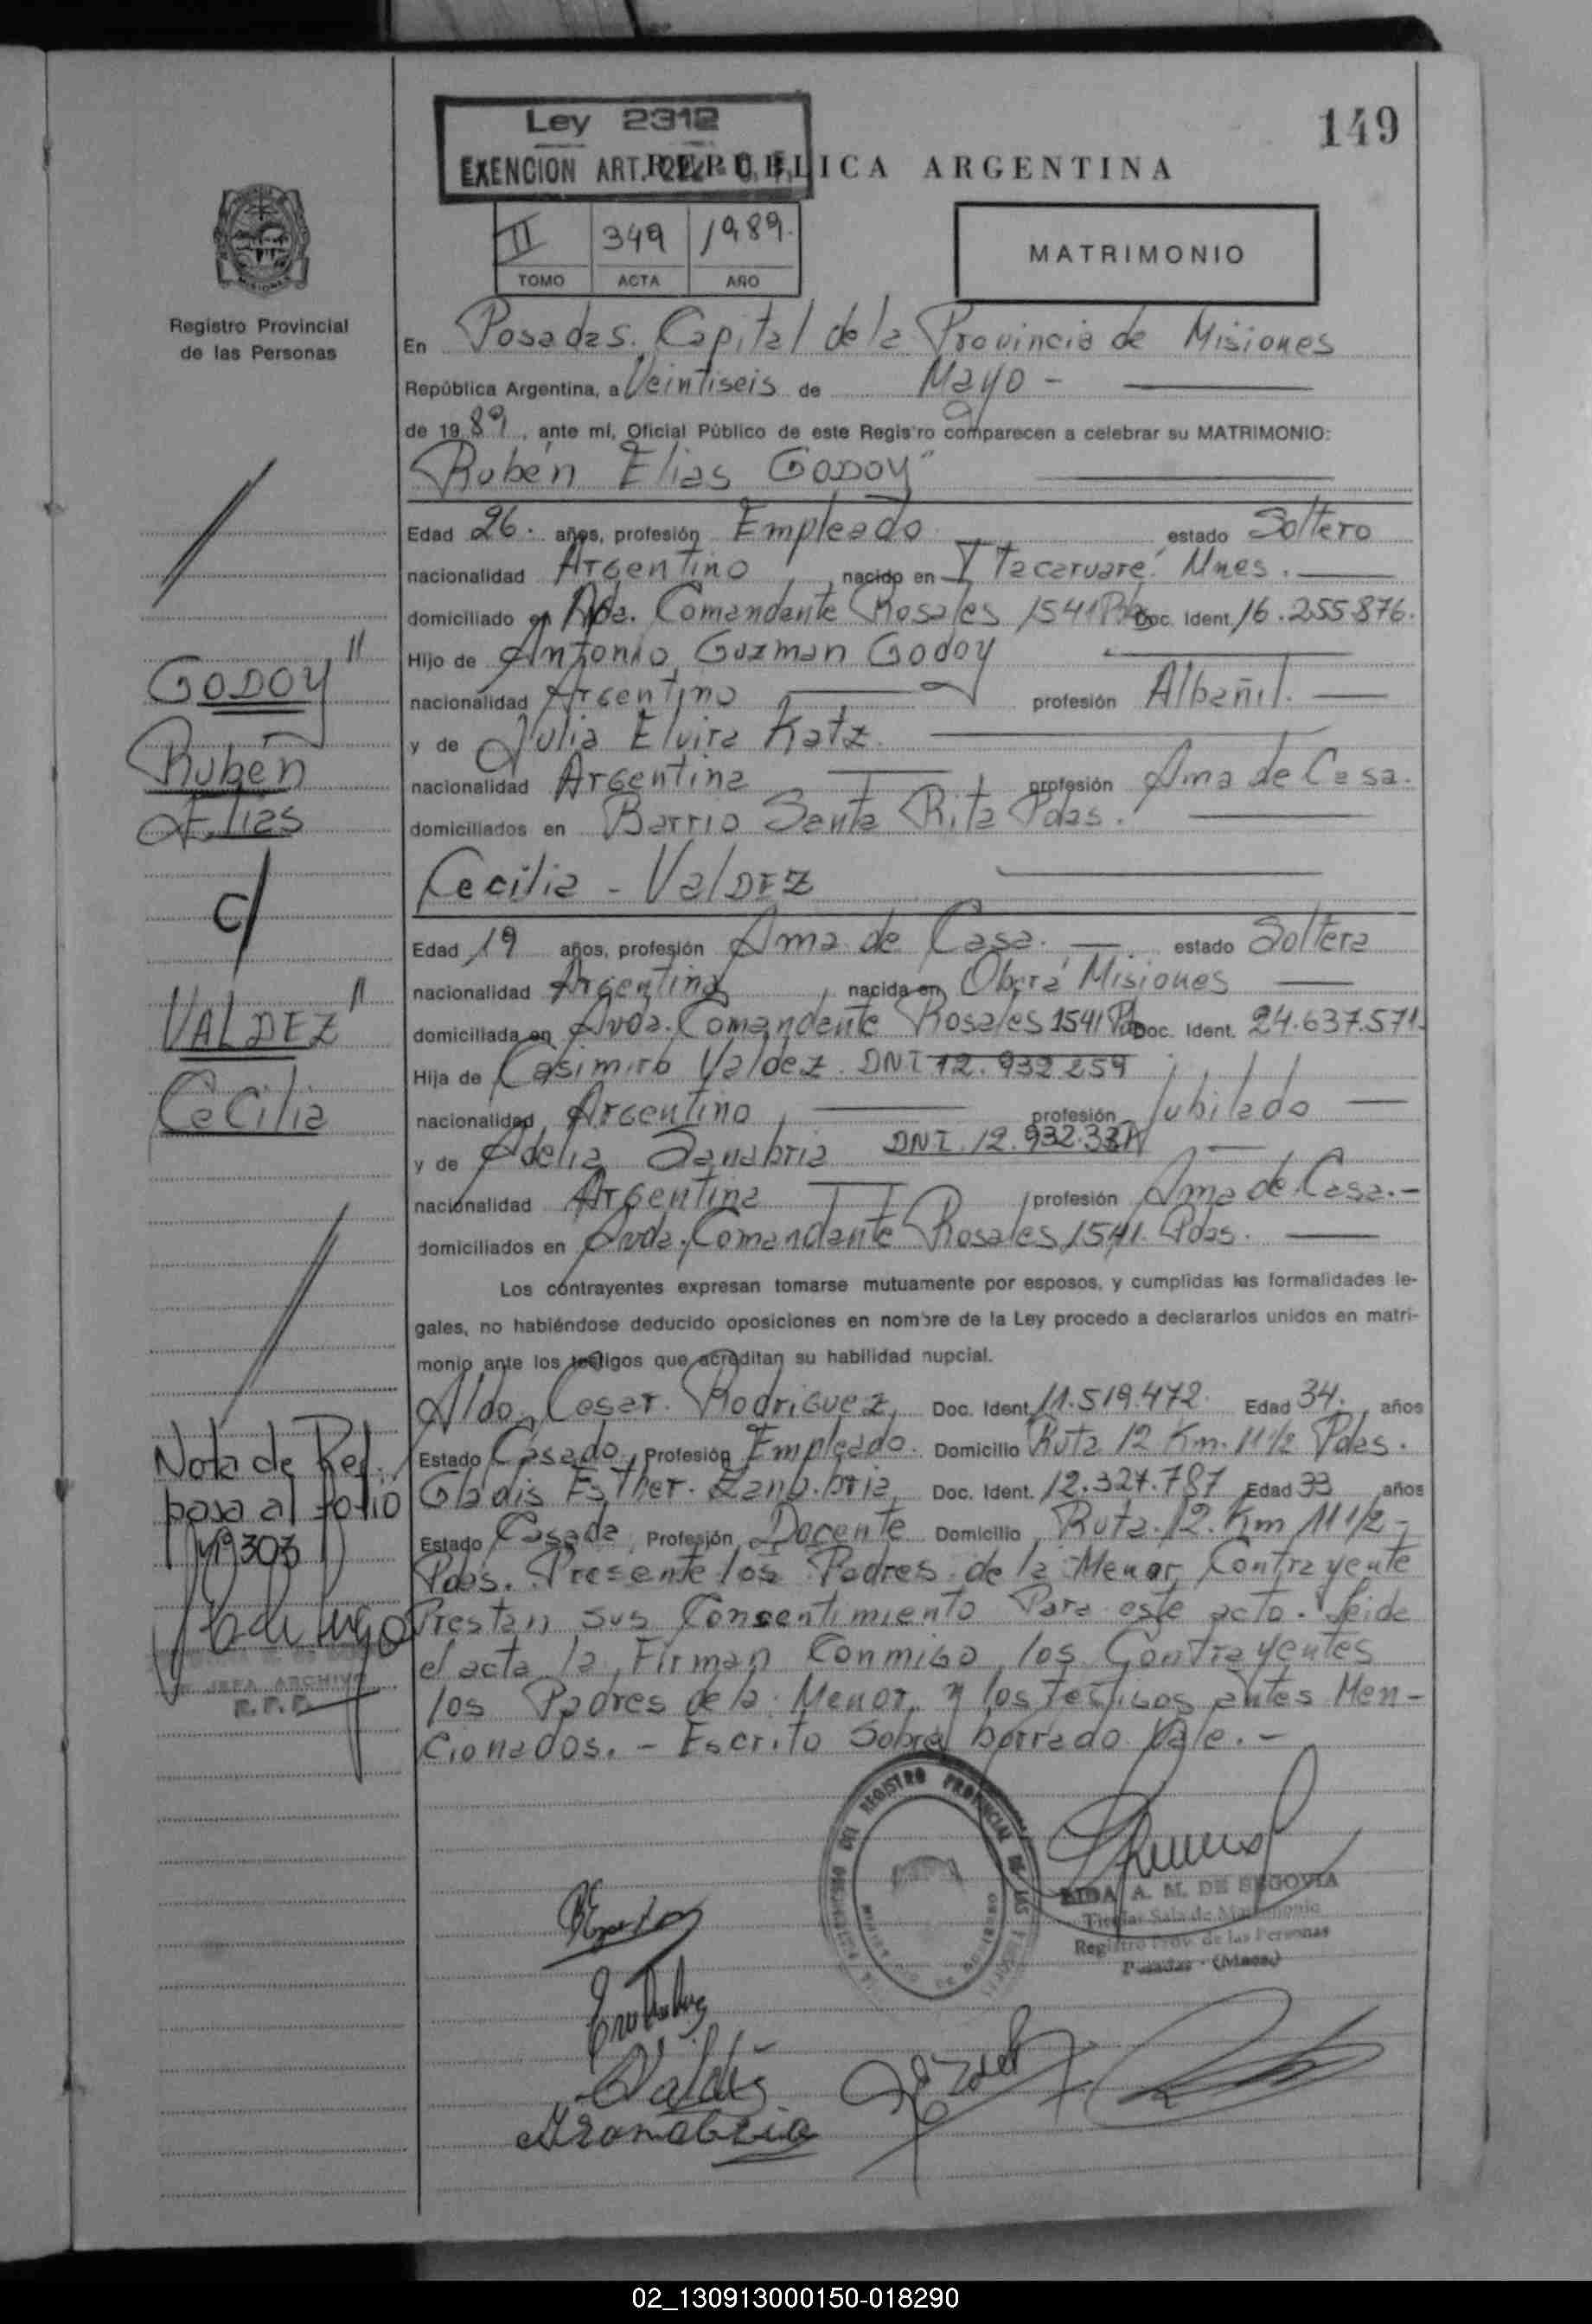 149
Ley 2312
EXENCION ART.
REPUBLICA ARGENTINA
II 349 1989.
TOMO ACTA AÑO
MATRIMONIO
Registro Provincial
de las Personas
En Posadas, Capital de la Provincia de Misiones
República Argentina, a Veintiseis de Mayo -
de 1989, ante mí, Oficial Público de este Registro comparecen a celebrar su MATRIMONIO:
Rubén Elias GODOY"
Edad 26. años, profesión Empleado estado Soltero
nacionalidad Argentino, nacido en Itacaruaré. Mnes.
domiciliado en Avda. Comandante Rosales 1541 Pdas Doc. Ident. 16.255.876.
Hijo de Antonio Guzman Godoy
nacionalidad Argentino profesión Albañil.
y de Julia Elvira Katz.
nacionalidad Argentina profesión Ama de Casa.
domiciliados en Barrio Santa Rita Pdas.
Cecilia - ValDEZ
Edad 19 años, profesión Ama de Casa. estado Soltera
nacionalidad Argentina, nacida en Oberá Misiones
domiciliada en Avda. Comandante Rosales 1541 Pdas Doc. Ident. 24.637.571.
Hija de Casimiro Valdez. DNI 12.932.259
nacionalidad Argentino profesión Jubilado
y de Adelia Sanabria DNI. 12.932.
nacionalidad Argentina profesión Ama de Casa.-
domiciliados en Avda. Comandante Rosales 1541. Pdas.
Los contrayentes expresan tomarse mutuamente por esposos, y cumplidas las formalidades le-
gales, no habiéndose deducido oposiciones en nombre de la Ley procedo a declararlos unidos en matri-
monio ante los testigos que acreditan su habilidad nupcial.
Aldo Cesar. Rodriguez, Doc. Ident. 11.519.472. Edad 34. años
Estado Casado, Profesión Empleado. Domicilio Ruta 12 Km. 11 1/2 Pdas.
Gladis Esther. Zanabria, Doc. Ident. 12.327.787 Edad 33 años
Estado Casada, Profesión Docente Domicilio Ruta. 12. Km 11 1/2 -
Pdas. Presente los Padres de la Menor Contrayente
Prestan sus Consentimiento Para este acto. Leida
el acta la Firman Conmigo los Contrayentes
los Padres de la Menor y los testigos antes Men-
cionados. - Escrito Sobre borrado Vale. -
GODOY"
Rubén
Elias
c/
VALDEZ"
Cecilia
Nota de Ref.
pasa al folio
Nº 303
JEFA ARCHIVO
R.P.P.
REGISTRO PROVINCIAL DE LAS
A. M. DE SEGOVIA
Titular Sala de Matrimonio
Registro Prov. de las Personas
Posadas - (Mnes.)
Valdez
02_130913000150-018290